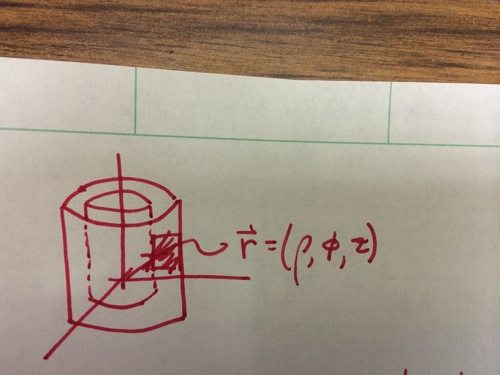 r⃗ = (ρ, φ, z)